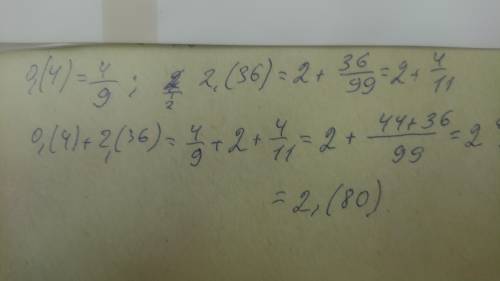 0,(4) = 4/9 ; 2,(36) = 2 + 36/99 = 2 + 4/11
0,(4) + 2,(36) = 4/9 + 2 + 4/11 = 2 + 44+36/99 = 2
= 2,(80)